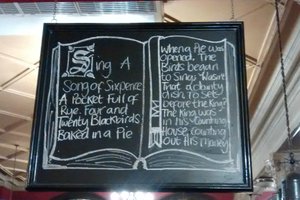 Sing A
Song of Sixpence
A Pocket Full of
Rye. Four and
Twenty Blackbirds
Baked in a Pie
When a Pie was
opened. The
Birds began
to Sing. Wasn't
That a dainty
dish To Set
before the King?
The King was
in his Counting
House, Counting
Out His Money